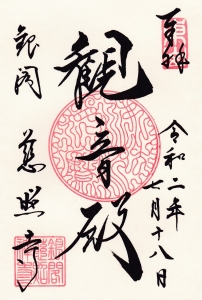 奉拝
令和二年
七月十八日
観音殿
銀閣
慈照寺